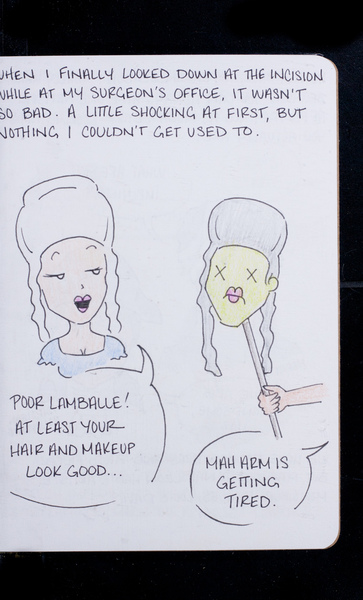 WHEN I FINALLY LOOKED DOWN AT THE INCISION
WHILE AT MY SURGEON'S OFFICE, IT WASN'T
SO BAD. A LITTLE SHOCKING AT FIRST, BUT
NOTHING I COULDN'T GET USED TO.
POOR LAMBALLE!
AT LEAST YOUR
HAIR AND MAKEUP
LOOK GOOD...
MAH ARM IS
GETTING
TIRED.